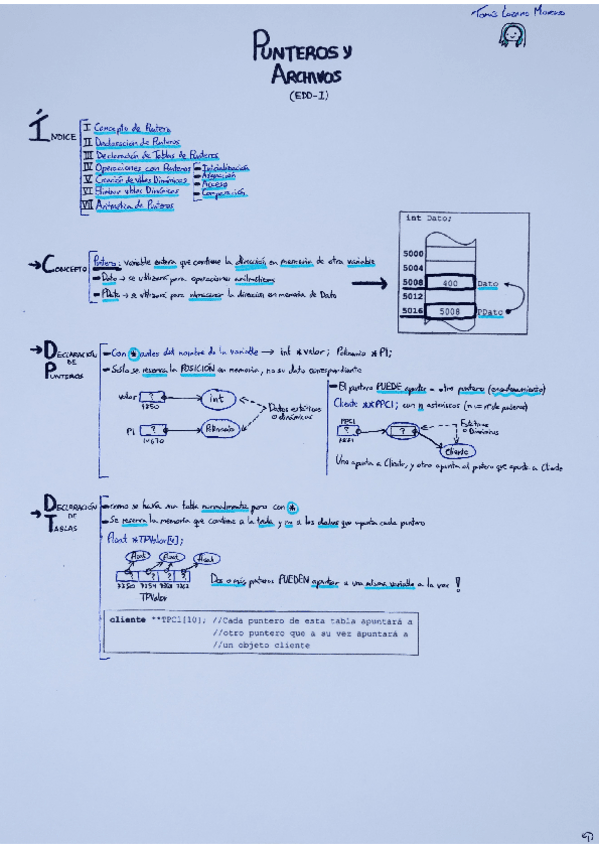 Tomás Lozano Moreno
PUNTEROS Y
ARCHIVOS
(EDD-I)
ÍNDICE
I Concepto de Puntero
II Declaración de Punteros
III Declaración de Tablas de Punteros
IV Operaciones con Punteros - Inicialización
- Asignación
- Acceso
- Comparación
V Creación de vbles Dinámicas
VI Eliminar vbles Dinámicas
VII Aritmética de Punteros
→ CONCEPTO
Puntero: variable entera que contiene la dirección en memoria de otra variable
- Dato → se utilizará para operaciones aritméticas
- PDato → se utilizará para almacenar la dirección en memoria de Dato
int Dato;
5000
5004
5008 400 Dato
5012
5016 5008 PDato
→ DECLARACIÓN DE PUNTEROS
- Con * antes del nombre de la variable → int *valor; Polinomio *P1;
- Sólo se reserva la POSICIÓN en memoria, no su dato correspondiente
valor ? int
1850
P1 ? Polinomio
14670
Datos estáticos
o dinámicos
- El puntero PUEDE apuntar a otro puntero (encadenamiento)
Cliente **PPC1; con n asteriscos (n = nº de punteros)
PPC1
? ? Estáticos
o Dinámicos
Cliente
Uno apunta a Cliente, y otro apunta al puntero que apunta a Cliente
→ DECLARACIÓN DE TABLAS
- como se haría una tabla normalmente pero con *
- Se reserva la memoria que contiene a la tabla y no a los datos que apunta cada puntero
float *TPValor[4];
float float float
? ? ? ?
TPValor
Dos o más punteros PUEDEN apuntar a una misma variable a la vez !
cliente **TPC1[10]; //Cada puntero de esta tabla apuntará a
//otro puntero que a su vez apuntará a
//un objeto cliente